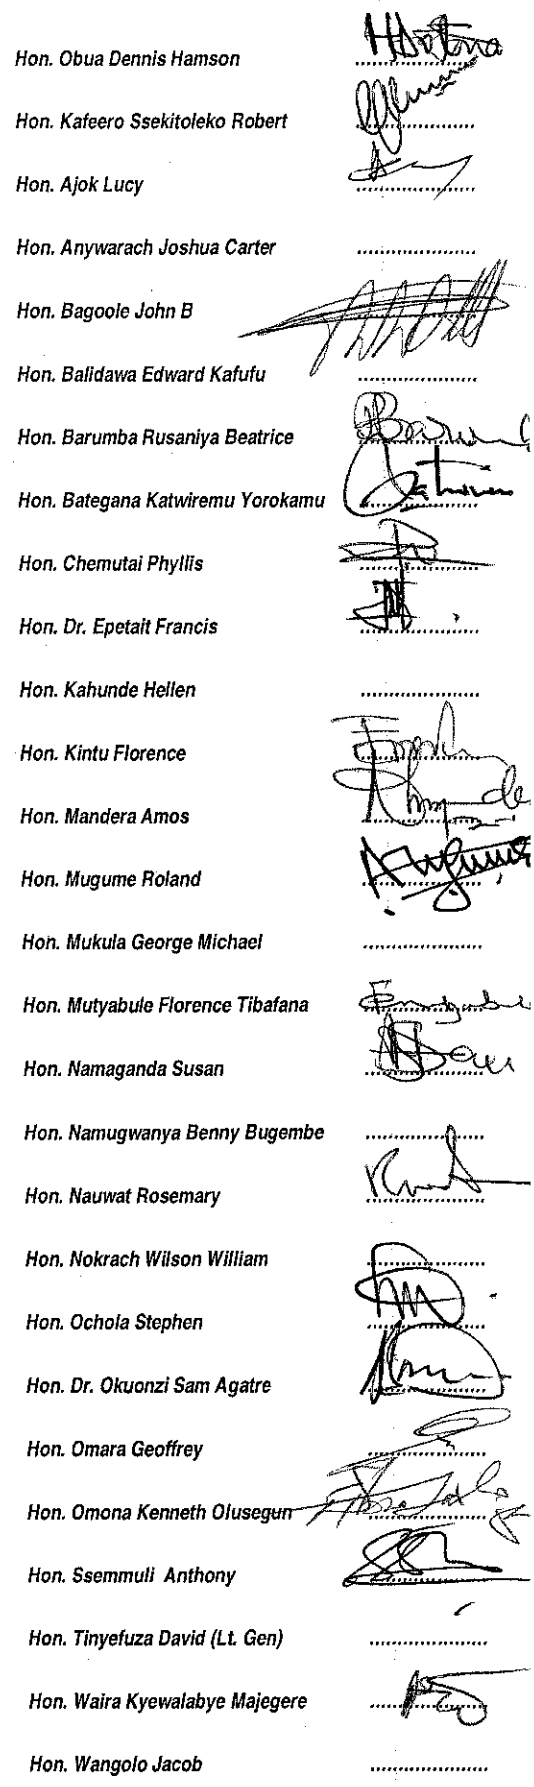 Hon. Obua Dennis Hamson ....................
Hon. Kafeero Ssekitoleko Robert ....................
Hon. Ajok Lucy ....................
Hon. Anywarach Joshua Carter ....................
Hon. Bagoole John B
Hon. Balidawa Edward Kafufu ....................
Hon. Barumba Rusaniya Beatrice ....................
Hon. Bategana Katwiremu Yorokamu ....................
Hon. Chemutai Phyllis ....................
Hon. Dr. Epetait Francis ....................
Hon. Kahunde Hellen ....................
Hon. Kintu Florence ....................
Hon. Mandera Amos ....................
Hon. Mugume Roland ....................
Hon. Mukula George Michael ....................
Hon. Mutyabule Florence Tibafana ....................
Hon. Namaganda Susan ....................
Hon. Namugwanya Benny Bugembe ....................
Hon. Nauwat Rosemary ....................
Hon. Nokrach Wilson William ....................
Hon. Ochola Stephen ....................
Hon. Dr. Okuonzi Sam Agatre ....................
Hon. Omara Geoffrey ....................
Hon. Omona Kenneth Olusegun ....................
Hon. Ssemmuli Anthony ....................
Hon. Tinyefuza David (Lt. Gen) ....................
Hon. Waira Kyewalabye Majegere ....................
Hon. Wangolo Jacob ....................